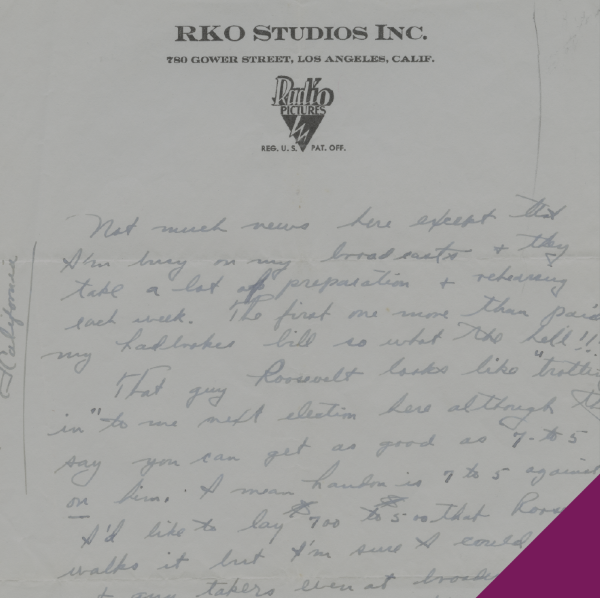 RKO STUDIOS INC.
780 GOWER STREET, LOS ANGELES, CALIF.
Radio
PICTURES
REG. U. S. PAT. OFF.
Not much news here except that
I'm busy on my broadcasts + they
take a lot of preparation + rehersing
each week. The first one more than paid
my bill so what the hell!!
That guy Roosevelt looks like "trotting
in" to me next election here although they
say you can get as good as 7-to 5
on him. I mean Landon is 7 to 5 against
I'd like to lay $700 to $500 that
walks it but I'm sure I could
+ any takers even at
California